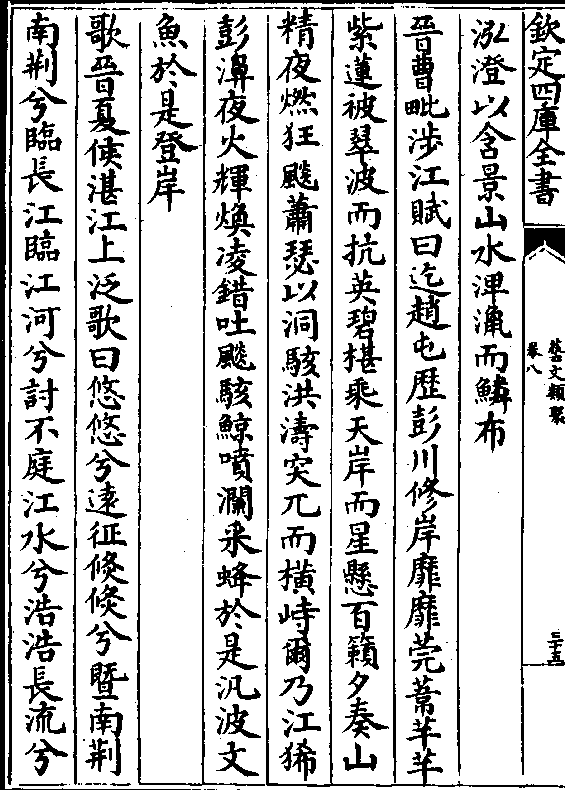 欽定四庫全書
藝文類聚
卷八
三十五
泓澄以含景山水渾濈而鱗布
晉曹毗涉江賦曰迄趙屯歷彭川修岸靡靡莞蒿芊芊
紫蓮被翠波而抗英碧椹乘天岸而星懸百籟夕奏山
精夜燃狂飈蕭瑟以洞駭洪濤突兀而橫峙爾乃江狶
彭濞夜火輝煥凌錯吐飈駭鯨噴瀾采蜂於是汎波文
魚於是登岸
歌晉夏侯湛江上泛歌曰悠悠兮遠征倏倏兮暨南荆
南荆兮臨長江臨江河兮討不庭江水兮浩浩長流兮